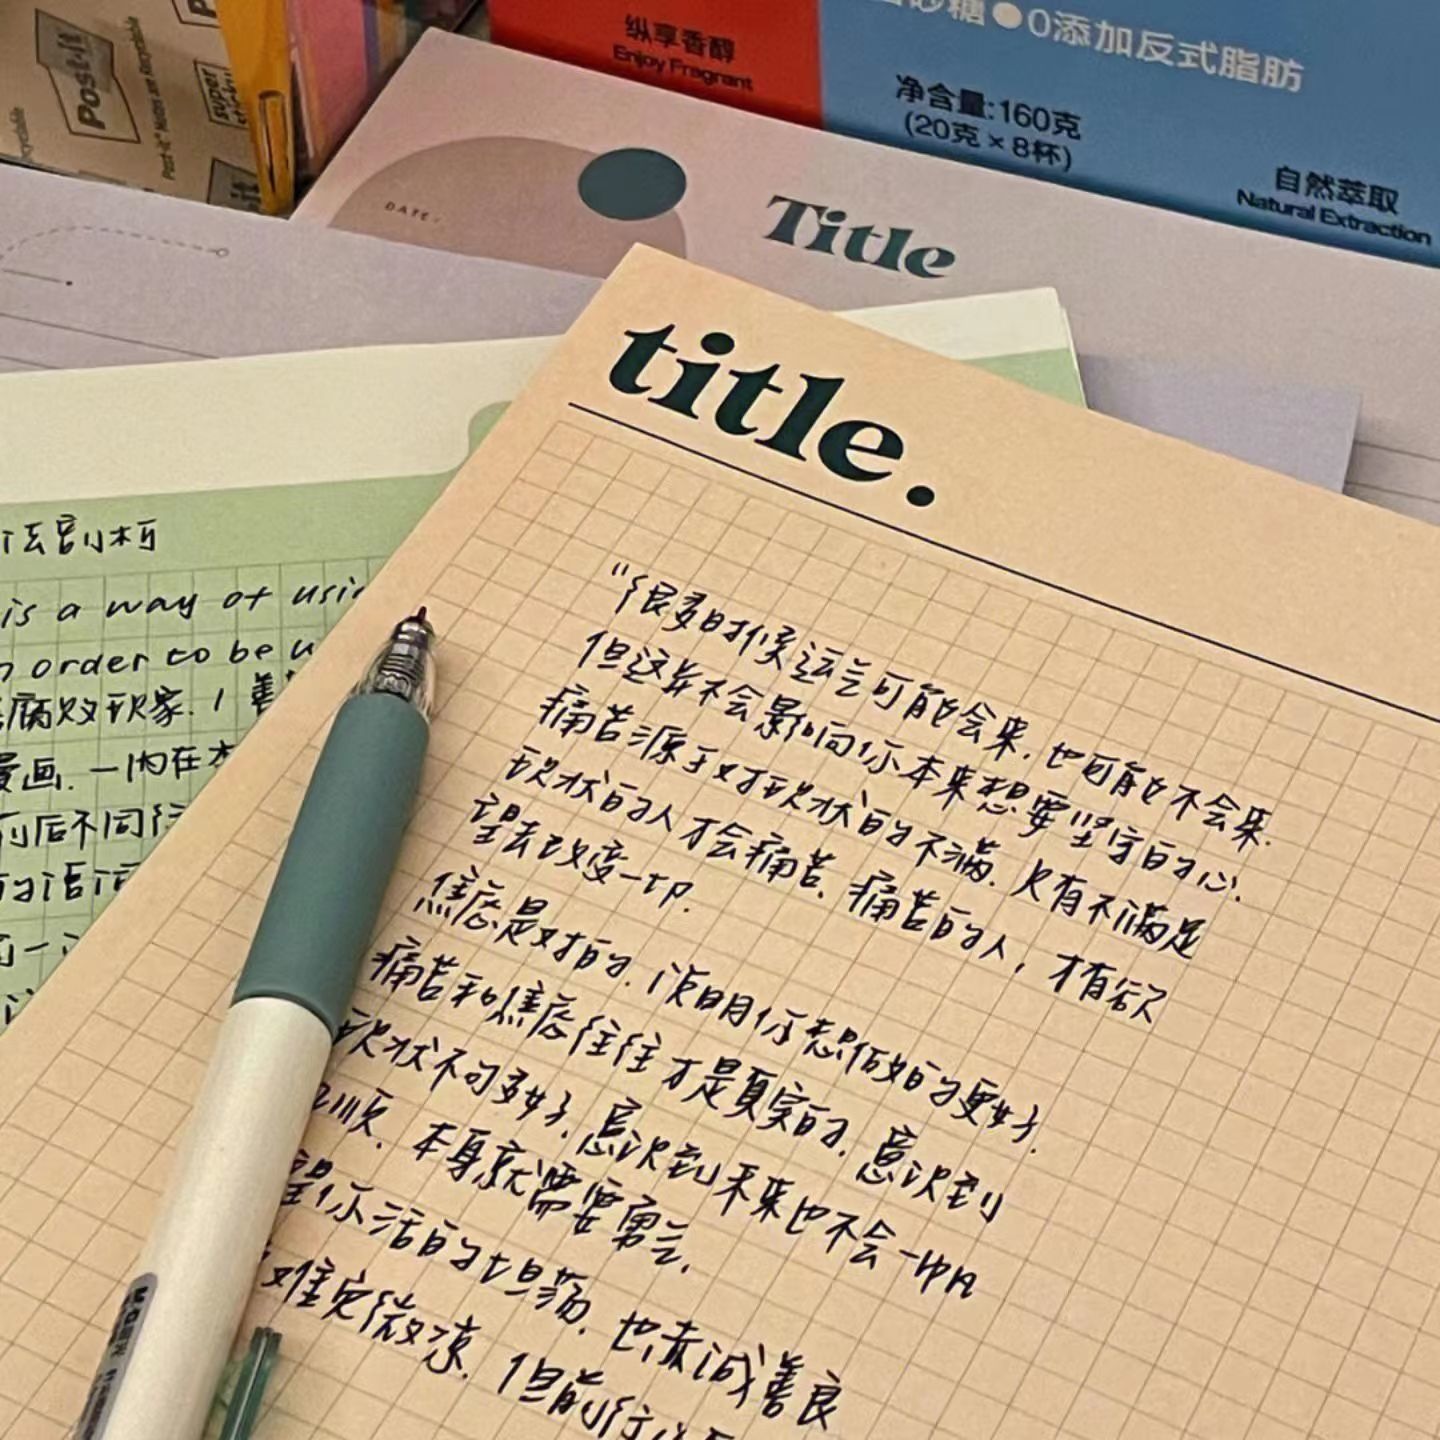 Post-it
Super
Post-it® Notes are Recyclable
纵享香醇
Enjoy Fragrant
砂糖●0添加反式脂肪
净含量:160克
(20克×8杯)
自然萃取
Natural Extraction
DATE.
Title
title.
is a way of usi
order to be u
腐败现象.
漫画. 一内在
前后不同
的话语
“很多时候运气可能会来. 也可能不会来.
但这并不会影响你本来想要坚守的心.
痛苦源于对现状的不满. 只有不满足
现状的人才会痛苦. 痛苦的人, 才有欲
望去改变一切.
焦虑是对的. 说明你想做的更好.
痛苦和焦虑往往才是真实的. 意识到
现状不可多好. 意识到未来也不会一帆
风顺. 本身就需要勇气.
望你活的坦荡. 也赤诚善良
难免微凉. 但前行